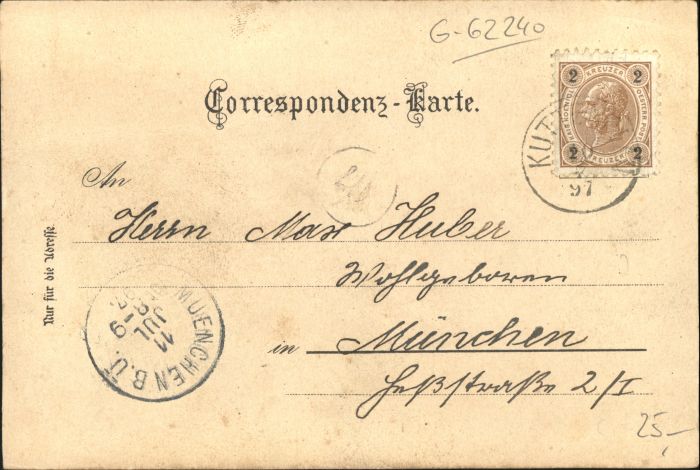 G-62240
Correspondenz-Karte.
2 KREUZER 2
2 KREUZER 2
KUT
97
24
An
Herrn Max Huber
Wohlgeboren
in München
Heßstraße 2/I
Nur für die Adresse.
MUENCHEN B.Ü.
11
JUL
25,-